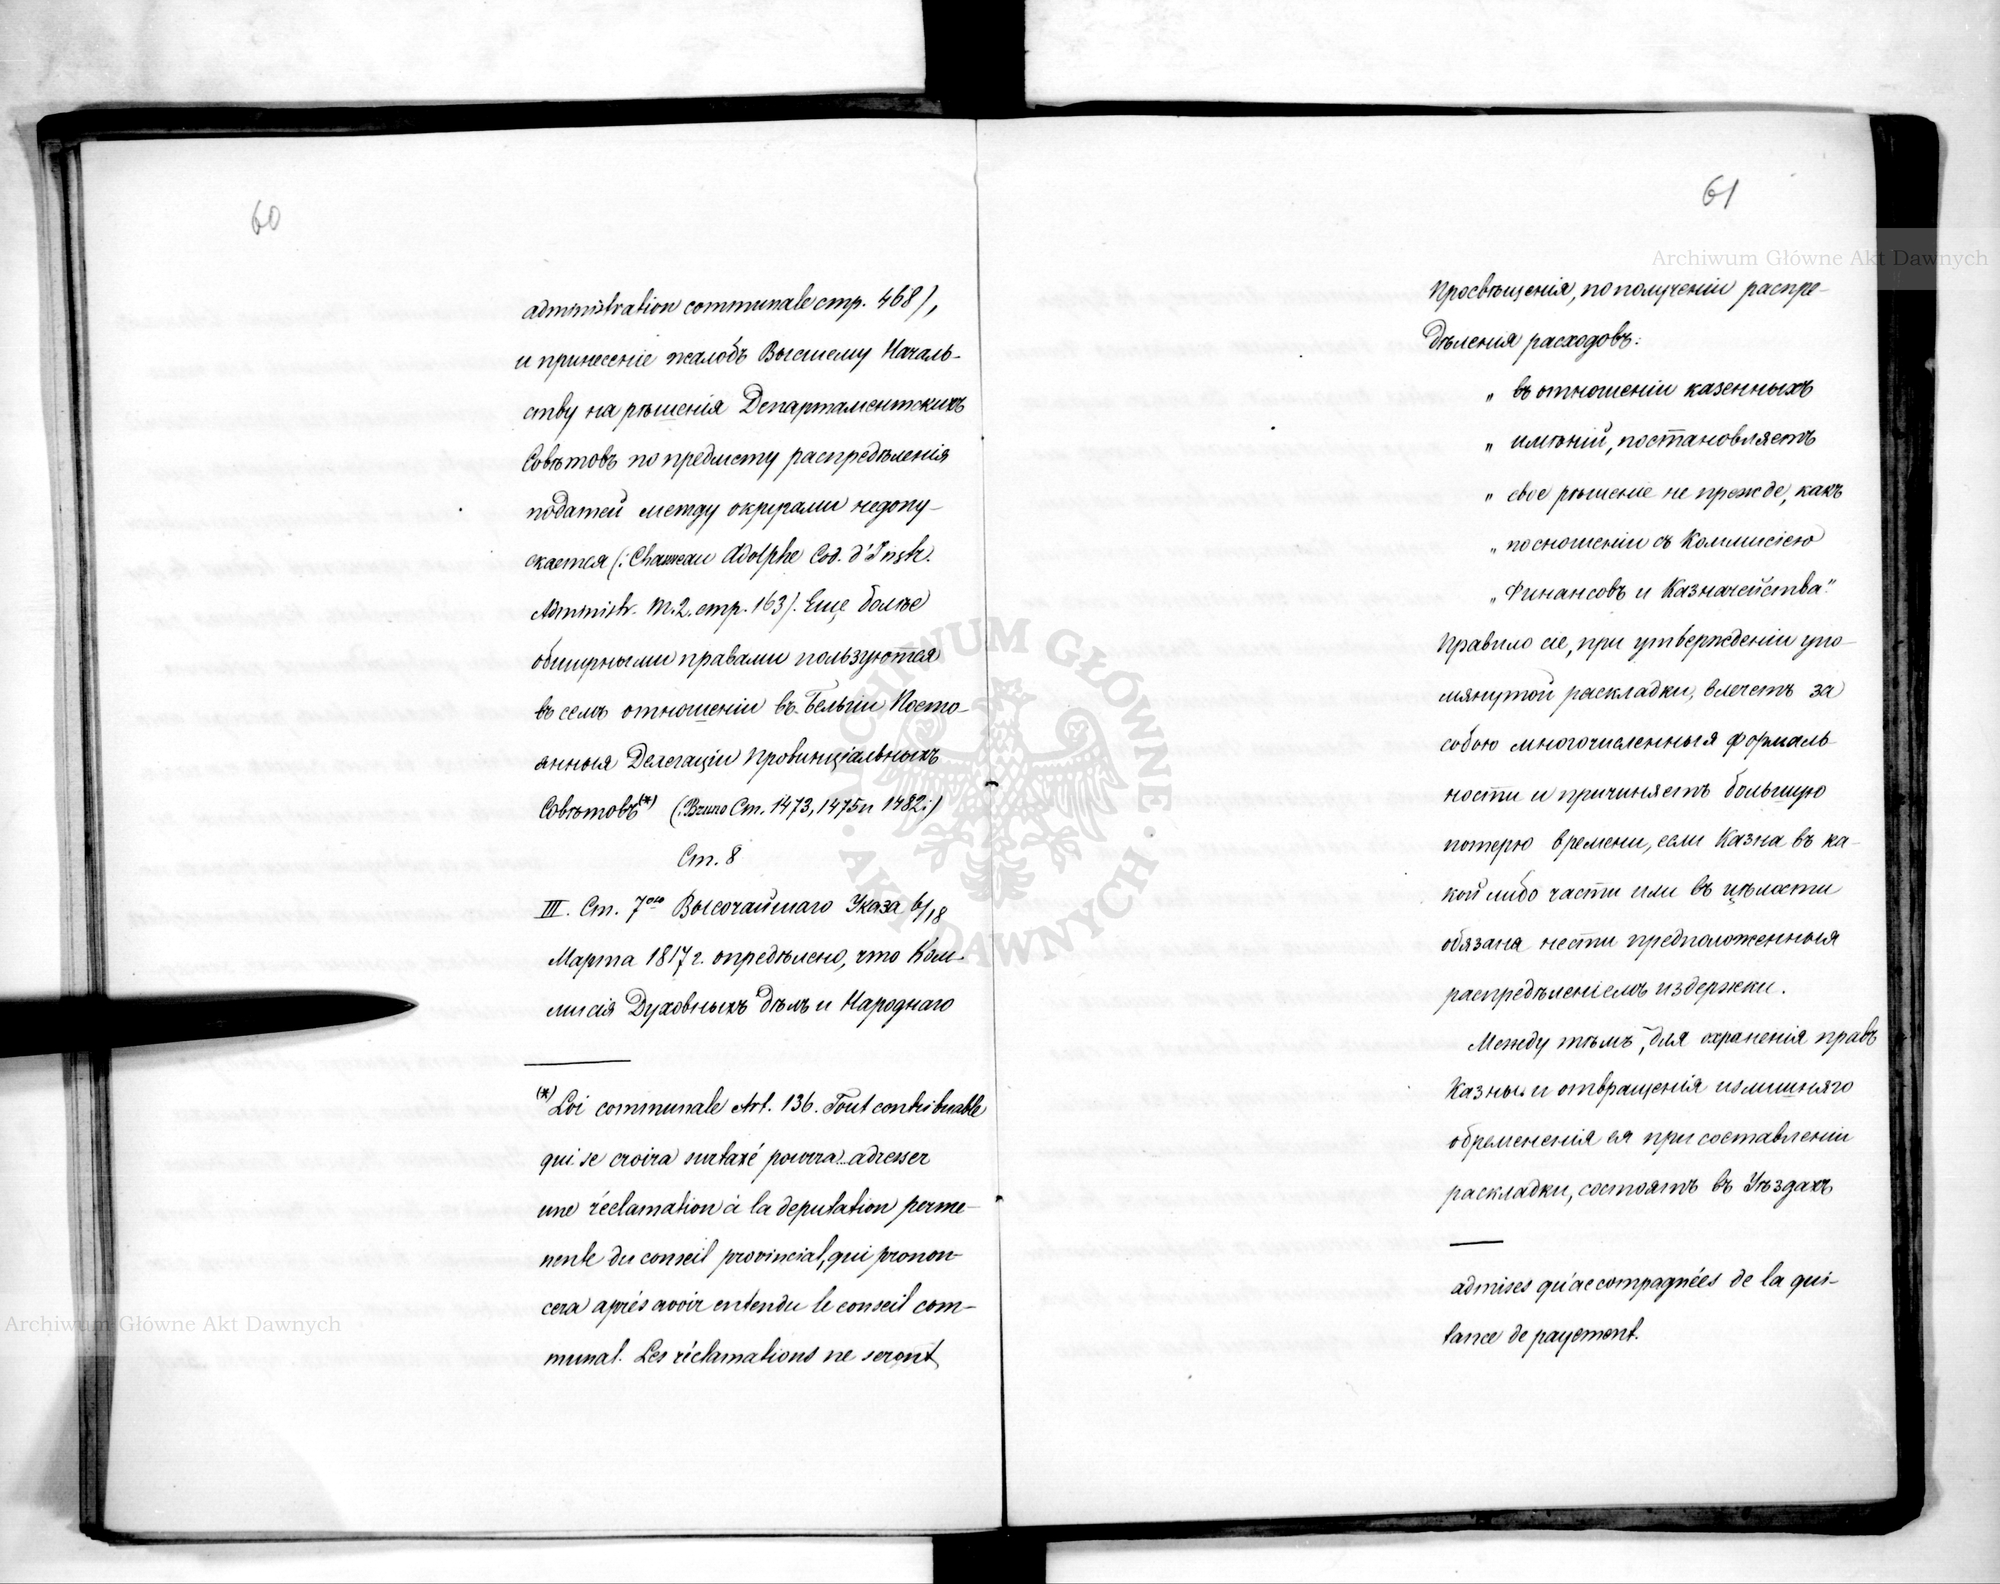 60
administration communale стр. 468),
и принесеніе жалобъ Высшему Началь-
ству на рѣшенія Департаментскихъ
Совѣтовъ по предмету распредѣленія
податей между округами недопу-
скается (: Chauveau Adolphe Cod. d'Instr.
Administr. т. 2. стр. 163). Еще болѣе
обширными правами пользуются
въ семъ отношеніи въ Бельгіи Посто-
янныя Делегаціи Провинціальныхъ
Совѣтовъ (*) (: Bruno Ст. 1473, 1475 и 1482 :)
Ст. 8
III. Ст. 7ою Высочайшаго Указа 6/18
Марта 1817 г. опредѣлено, что Ком-
мисія Духовныхъ Дѣлъ и Народнаго
(*) Loi communale Art. 136. Tout contribuable
qui se croira surtaxé pourra... adresser
une réclamation à la deputation perme-
nente du conseil provincial, qui pronon-
cera après avoir entendu le conseil com-
munal. Les réclamations ne seront
61
Просвѣщенія, по полученіи распре-
дѣленія расходовъ:
„ въ отношеніи казенныхъ
„ имѣній, постановляетъ
„ свое рѣшеніе не прежде, какъ
„ по сношеніи съ Коммисіею
„ Финансовъ и Казначейства."
Правило сіе, при утвержденіи упо-
мянутой раскладки, влечетъ за
собою многочисленныя формаль-
ности и причиняетъ большую
потерю времени, если Казна въ ка-
кой либо части или въ цѣлости
обязана нести предположенныя
распредѣленіемъ издержки.
Между тѣмъ, для охраненія правъ
Казны и отвращенія излишняго
обремененія ея при составленіи
раскладки, состоятъ въ Уѣздахъ
admises qu'accompagnées de la qui-
tance de payement.
Archiwum Główne Akt Dawnych
Archiwum Główne Akt Dawnych
ARCHIWUM GŁÓWNE · AKT DAWNYCH ·